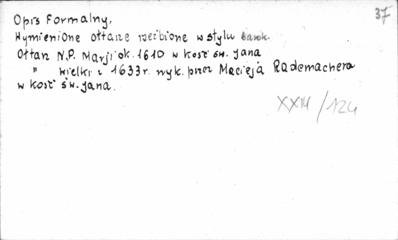 37
Opis Formalny.
Wymienione ołtarze rzeźbione w stylu barok.
Ołtarz N.P. Marji ok. 1610 w kość św. Jana
" wielki z 1633 r. wyk. przez Macieja Rademachera
w kość św. Jana.
XXIII/124